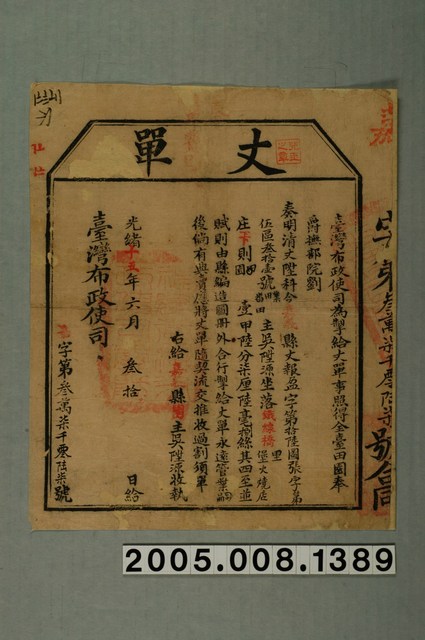 丈單
臺灣布政使司為掣給丈單事照得全臺田園奉
爵撫部院劉
奏明清丈陞科合嘉義縣丈報盈字第拾陸圖張字第
伍區叁拾壹號 主吳陞源坐落 堡 里 火燒店
庄下則園 壹甲陸分柒厘陸毫 絲其四至並
賦則由縣編造圖冊外合行掣給丈單永遠管業嗣
後倘有典賣應將丈單隨契流交推收過割須單
右給嘉義縣 主吳陞源收執
光緒十五年六月 叁拾 日給
臺灣布政使司
字第叁萬柒千零陸柒號
字第叁萬柒千零陸柒號合同
2005.008.1389